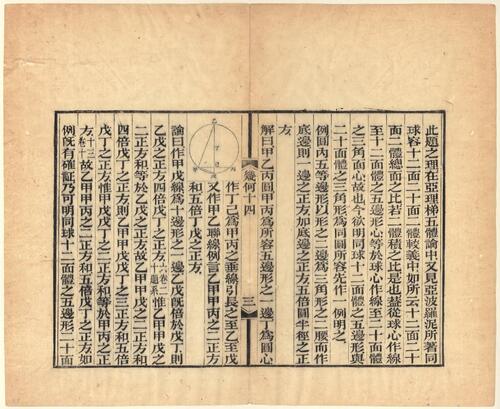 此題之理在亞理梯五體論中又見亞波羅泥所著同
球容十二面二十面二體較義中如所云十二面二十
面二體總面之比若二體積之比是也葢從球心作線
至十二面體之五邊形心等於球心作線至二十面體
之三角面心故也今欲明同球十二面體之五邊形與
二十面體之三角形爲同圜所容先作一例明之
例圜內五等邊形以形之二邊爲三角形之二腰而作
底邊則一邊之正方如底邊之正方五倍圜半徑之正
方
幾何十四
三
解曰甲乙丙圜甲丙爲所容五邊形之一邊丁爲圜心
作丁己爲甲丙之垂線引長之至乙至戊
又作甲乙聯線例言乙甲甲丙之二正方
和五倍丁戊之正方
論曰作甲戊線爲十邊形之一邊乙戊旣倍於戊丁則
乙戊之正方四倍戊丁之正方六卷二十題系惟乙甲甲戊之
二正方和等於乙戊之正方故乙甲甲戊之二正方和
四倍戊丁之正方則乙甲甲戊戊丁之三正方和五倍
戊丁之正方惟甲戊戊丁之二正方和等於甲丙之正
方十三卷十故乙甲甲丙之二正方和五倍戊丁之正方如
例旣有確証乃可明同球十二面體之五邊形二十面